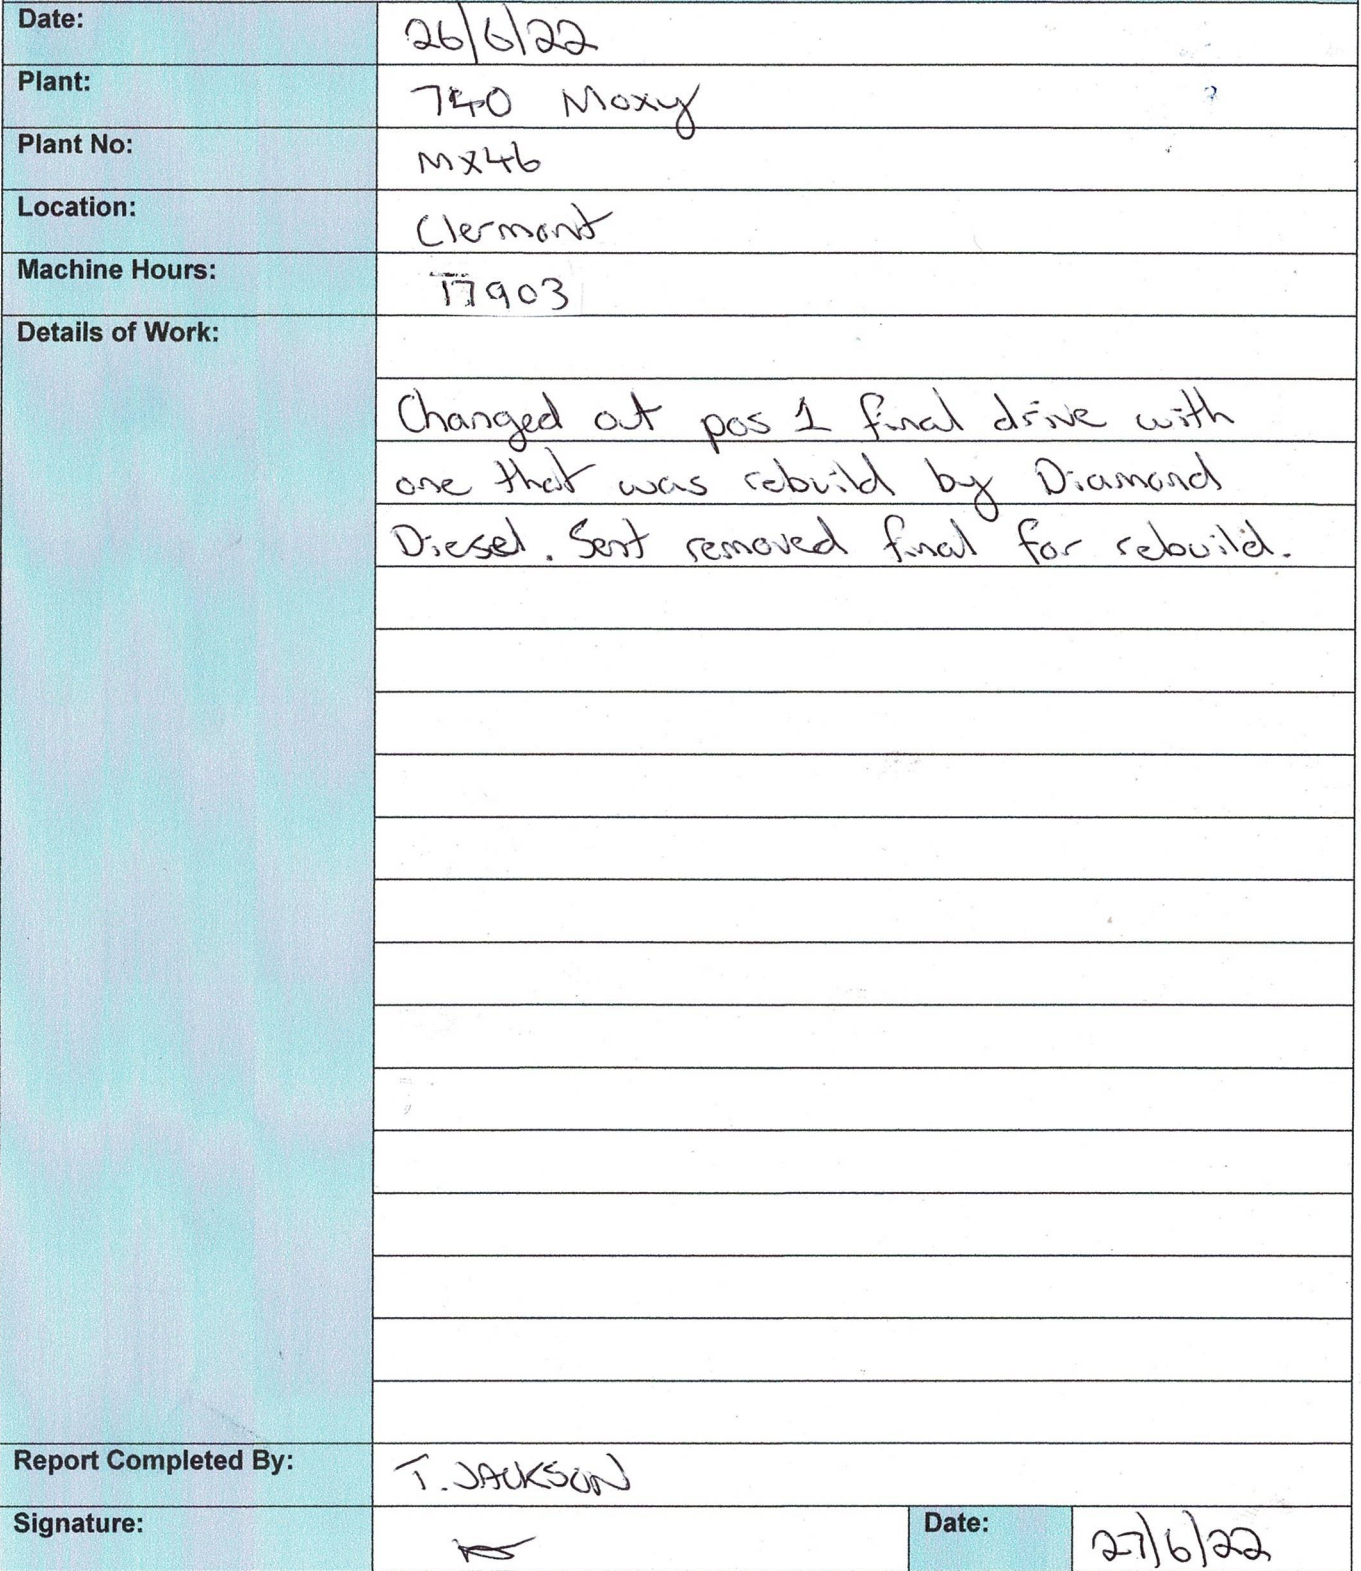 Date: 26/6/22
Plant: 740 Moxy
Plant No: MX46
Location: Clermont
Machine Hours: 17903
Details of Work:
Changed out pos 1 final drive with
one that was rebuild by Diamond
Diesel. Sent removed final for rebuild.
Report Completed By: T. JACKSON
Signature: Date: 27/6/22